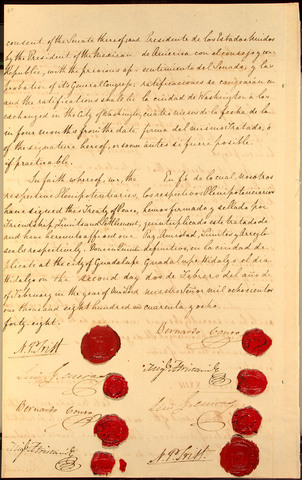 consent of the Senate thereof; and
by the President of the Mexican
Republic, with the previous ap-
probation of its General Congress;
and the ratifications shall be
exchanged in the City of Washington,
in four months from the date
of the signature hereof, or sooner
if practicable.
In faith whereof, we, the
respective Plenipotentiaries,
have signed this Treaty of Peace,
Friendship, Limits and Settlement,
and have hereunto affixed our
seals respectively. Done in Quintu-
plicate at the City of Guadalupe
Hidalgo on the second day
of February in the year of Our Lord
one thousand eight hundred and
forty eight.
N. P. Trist
Luis G. Cuevas
Bernardo Couto
Migl Atristain
Presidente de los Estados Unidos
de America con el consejo y con-
sentimiento del Senado, y las
ratificaciones se cangearán en
la ciudad de Washington a los
cuatro meses de la fecha de la
firma del mismo Tratado, ó
antes si fuere posible.
En fé de lo cual, nosotros
los respectivos Plenipotenciarios
hemos firmado y sellado por
quintuplicado este tratado de
Paz, Amistad, Límites y Arreglo
definitivo, en la ciudad de
Guadalupe Hidalgo el dia
dos de Febrero del año de
nuestro Señor mil ochocientos
cuarenta y ocho.
Bernardo Couto
Migl Atristain
Luis G. Cuevas
N. P. Trist